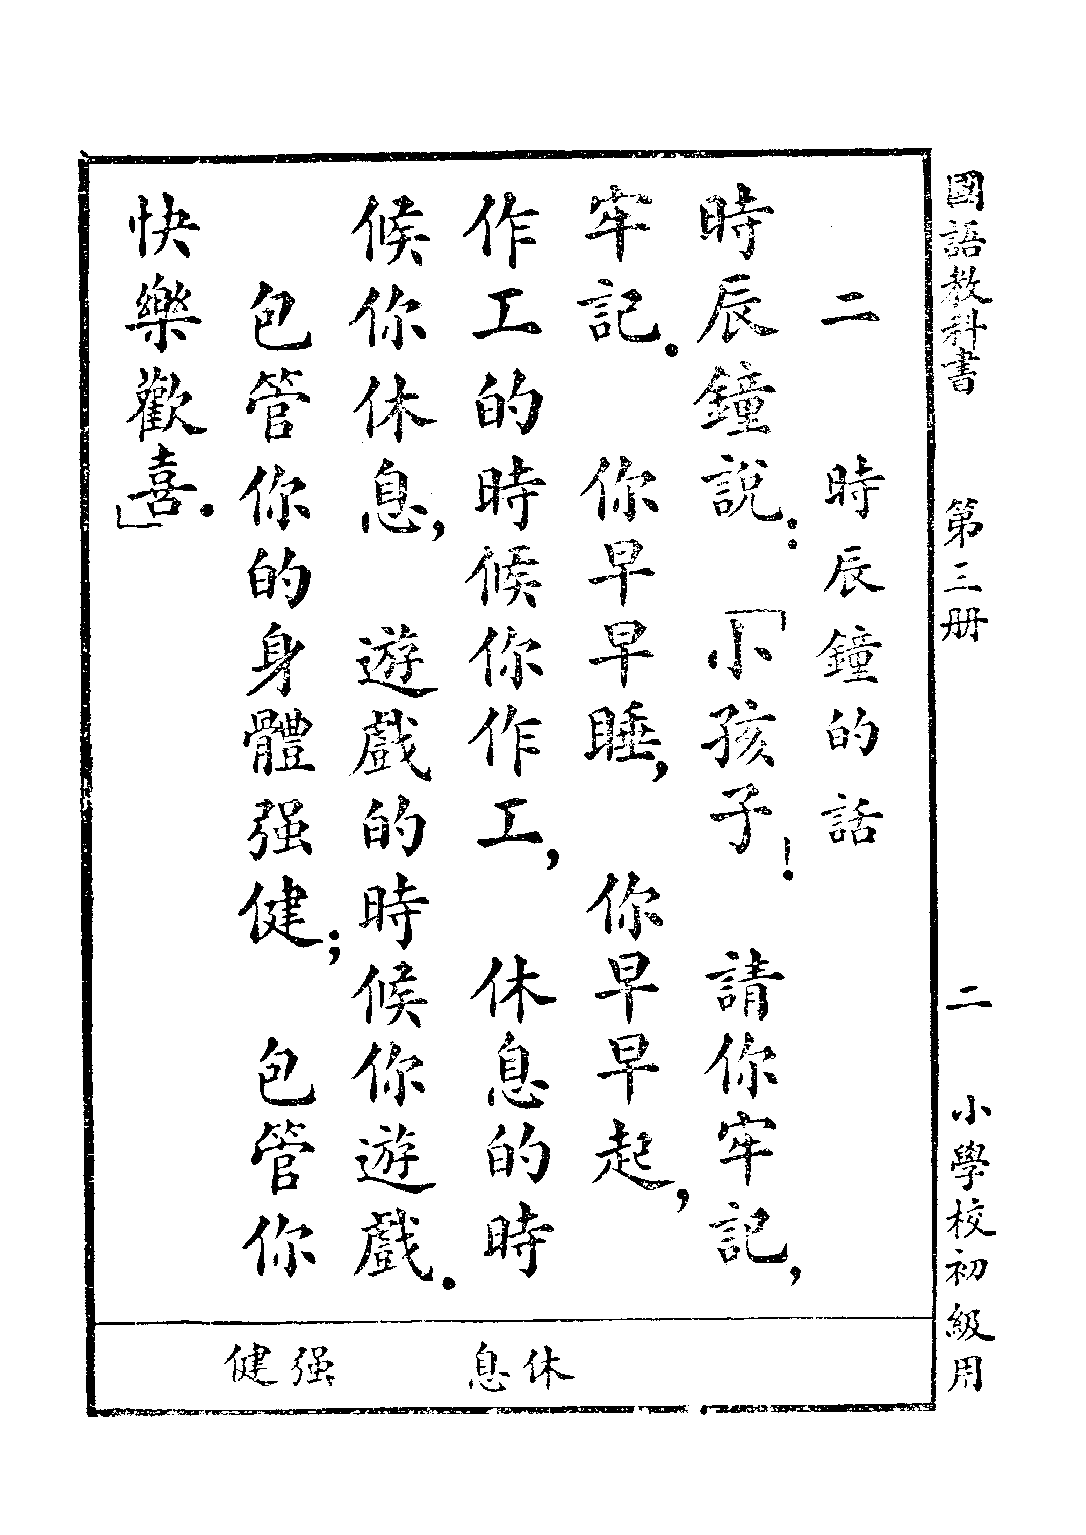 國語教科書 第三册 二 小學校初級用
二 時辰鐘的話
時辰鐘說：「小孩子！請你牢記，
牢記．你早早睡，你早早起，
作工的時候你作工，休息的時
候你休息，遊戲的時候你遊戲．
包管你的身體强健；包管你
快樂歡喜．」
休息 强健